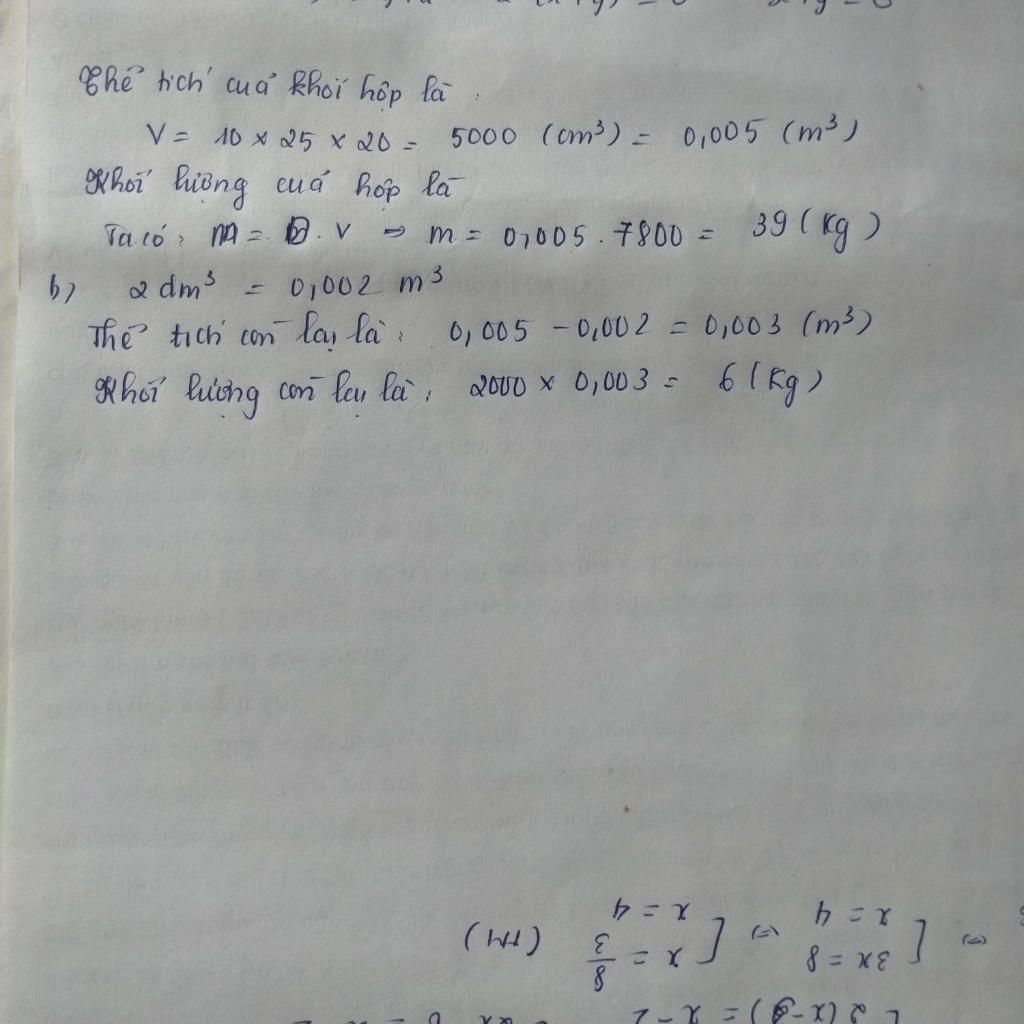 Thể tích của khối hộp là:
V = 10 × 25 × 20 = 5000 (cm³) = 0,005 (m³)
Khối lượng của hộp là
Ta có: m = D . V ⇒ m = 0,005 . 7800 = 39 (kg)
b) 2 dm³ = 0,002 m³
Thể tích còn lại là: 0,005 - 0,002 = 0,003 (m³)
Khối lượng còn lại là: 2000 × 0,003 = 6 (kg)
⇔ [ 3x = 8 ⇔ [ x = 8/3 (TM)
x = 4 x = 4